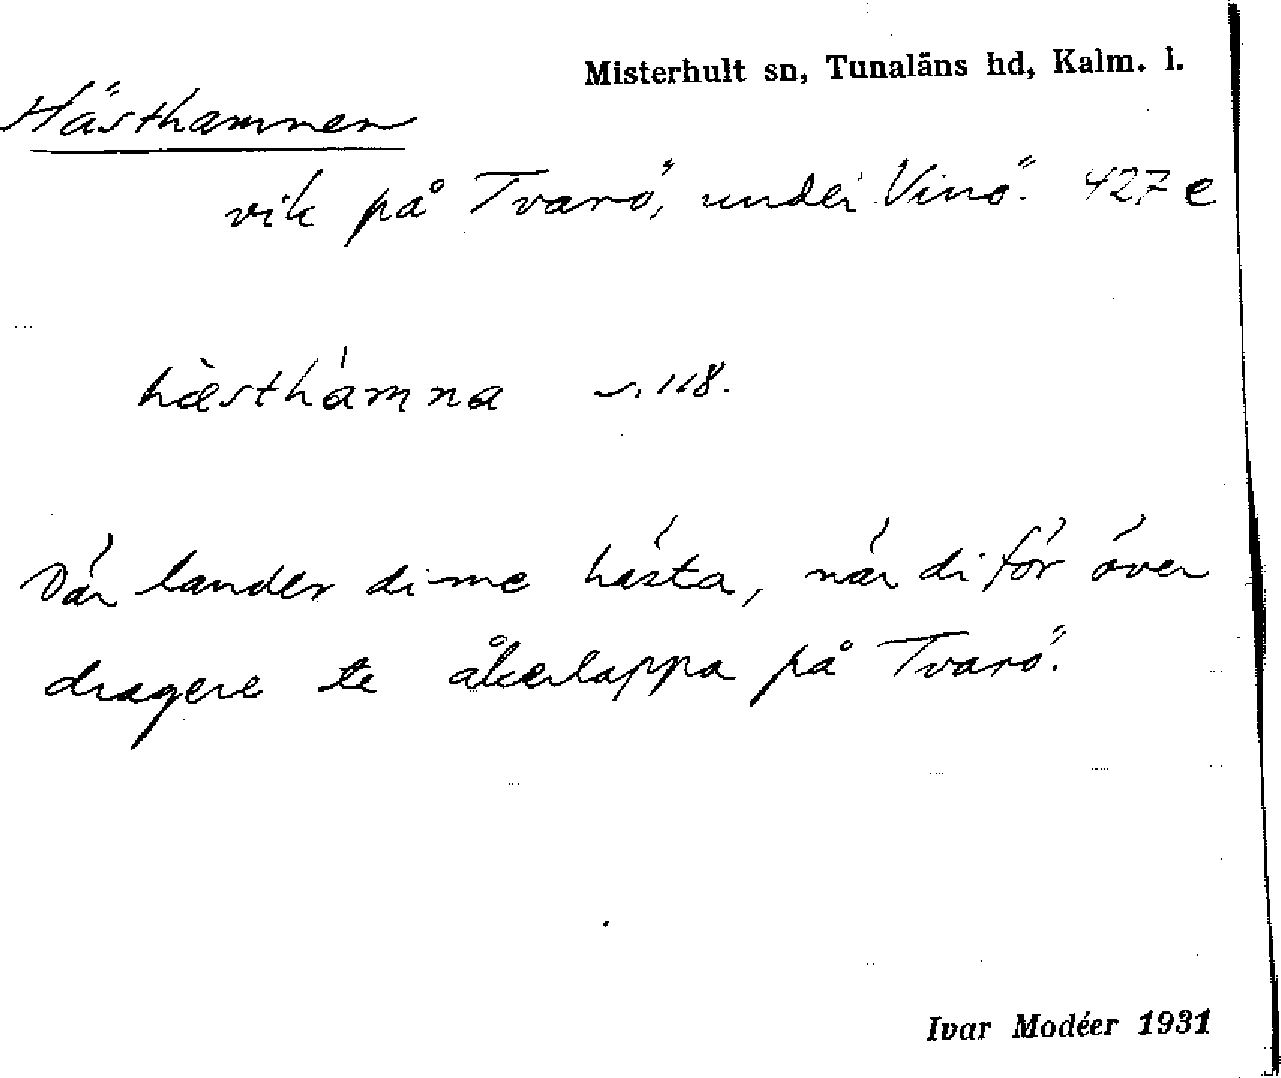 Misterhult sn, Tunaläns hd, Kalm. l.
Hästhamnen
vik på Tvarö, under Vinö. 427 e
hæ̀sthámna s. 118.
Där lander di me hästa, när diför över
dragere te åkerlappa på Tvarö.
Ivar Modéer 1931